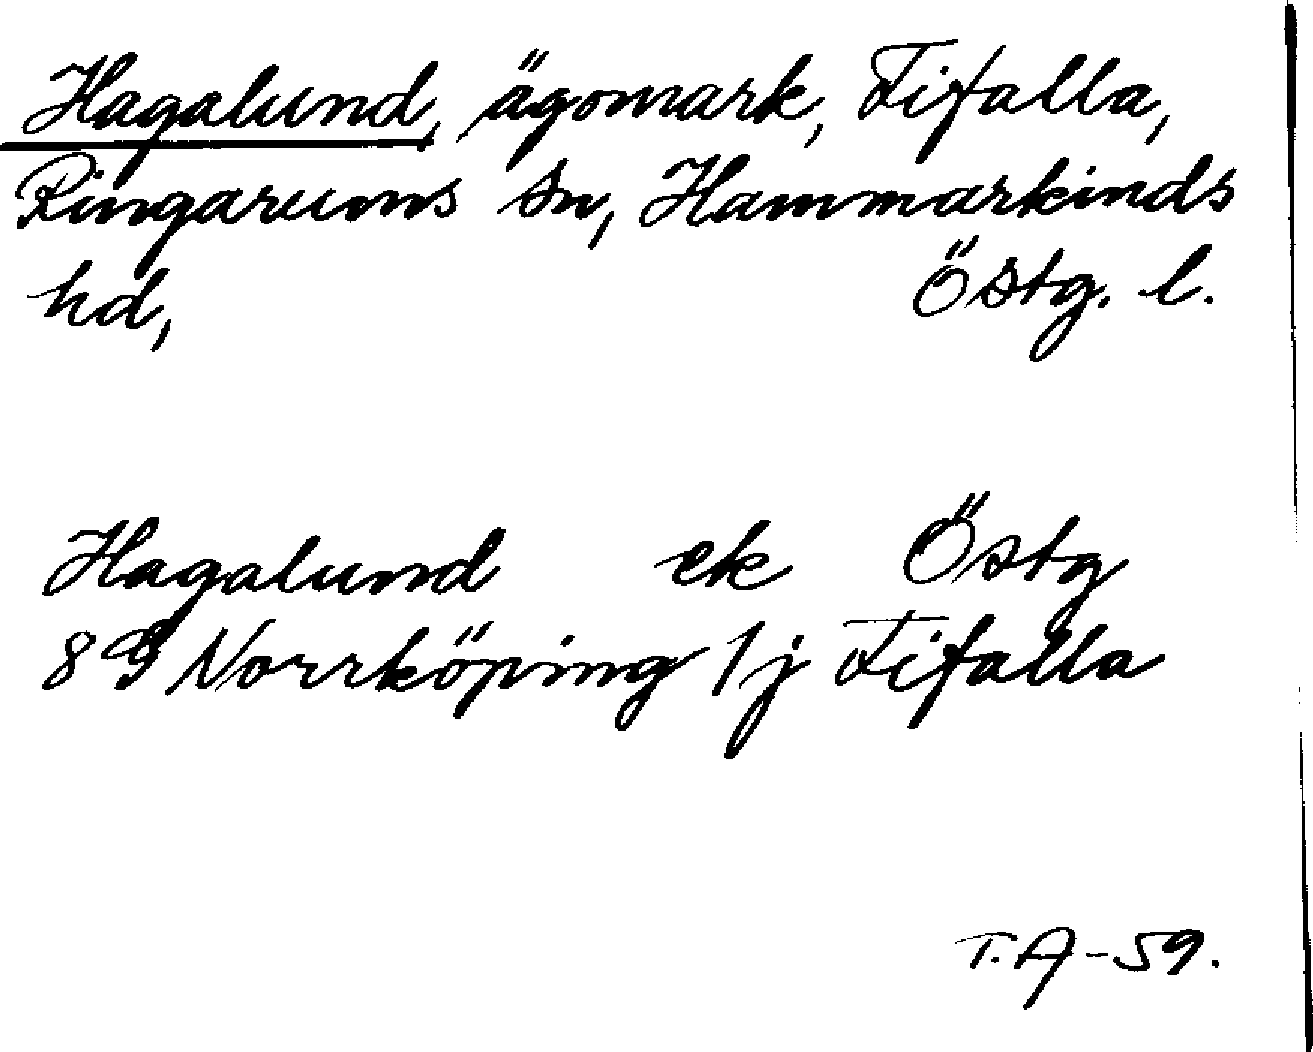 Hagalund, ägomark, Fifalla,
Ringarums sn, Hammarkinds
hd, Östg. l.
Hagalund ek Östg
8G Norrköping 1j Fifalla
T.A-59.